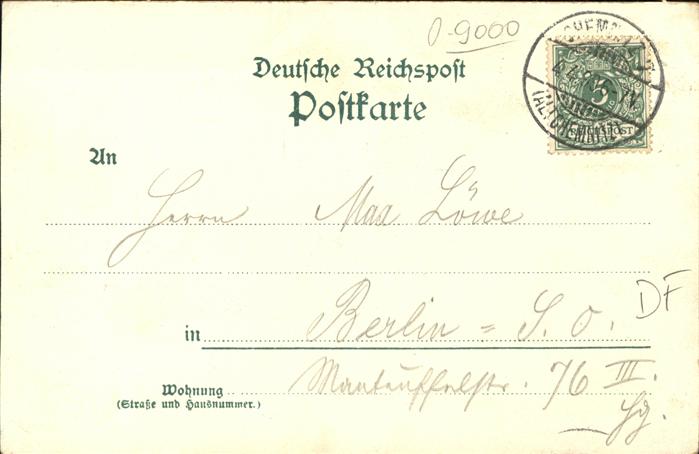 0-9000
Deutsche Reichspost
Postkarte
CHEMNITZ
(ALTCHEMNITZ)
5
REICHSPOST
An
Herrn Max Löwe
in Berlin = S. O.
DF
Wohnung Manteuffelstr. 76 III.
(Straße und Hausnummer.)